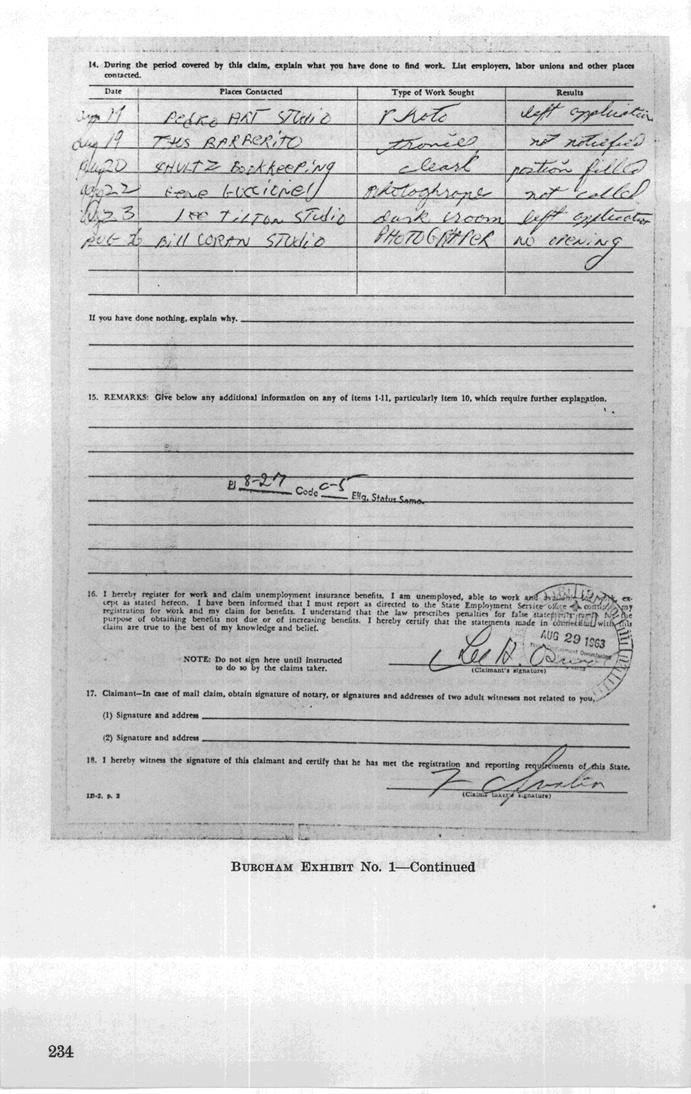 14. During the period covered by this claim, explain what you have done to find work. List employers, labor unions and other places
contacted.
Date Places Contacted Type of Work Sought Results
PEDRO ART STUDIO Photo left application
Aug 19 THS BARBERITO not
Aug 20 SHULTZ BOOKKEEPING position filled
Aug 22 GENE not called
Aug 23 LEE TILTON STUDIO dark room left application
AUG 26 Bill CORAN STUDIO no OPENING
If you have done nothing, explain why.
15. REMARKS: Give below any additional information on any of items 1-11, particularly item 10, which require further explanation.
8-27 Code C-5 Elig. Status Same.
16. I hereby register for work and claim unemployment insurance benefits. I am unemployed, able to work and ex-
cept as stated hereon. I have been informed that I must report as directed to the State Employment Service office my
registration for work and my claim for benefits. I understand that the law prescribes penalties for false statements for the
purpose of obtaining benefits not due or of increasing benefits. I hereby certify that the statements made in connection with this
claim are true to the best of my knowledge and belief.
AUG 29 1963
NOTE: Do not sign here until instructed
to do so by the claims taker.
Lee H.
(Claimant's signature)
17. Claimant—In case of mail claim, obtain signature of notary, or signatures and addresses of two adult witnesses not related to you.
(1) Signature and address
(2) Signature and address
18. I hereby witness the signature of this claimant and certify that he has met the registration and reporting requirements of this State.
(Claims taker's signature)
IB-2, p. 2
BURCHAM EXHIBIT No. 1—Continued
234